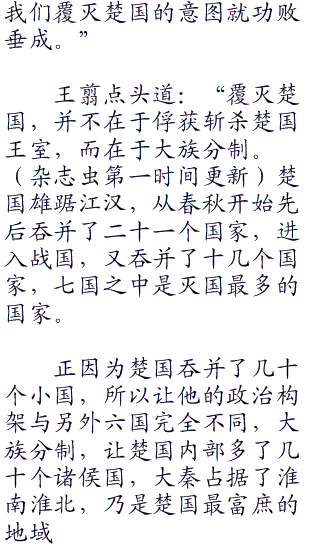 我们覆灭楚国的意图就功败
垂成。”
王翦点头道：“覆灭楚
国，并不在于俘获斩杀楚国
王室，而在于大族分制。
（杂志虫第一时间更新）楚
国雄踞江汉，从春秋开始先
后吞并了二十一个国家，进
入战国，又吞并了十几个国
家，七国之中是灭国最多的
国家。
正因为楚国吞并了几十
个小国，所以让他的政治构
架与另外六国完全不同，大
族分制，让楚国内部多了几
十个诸侯国，大秦占据了淮
南淮北，乃是楚国最富庶的
地域